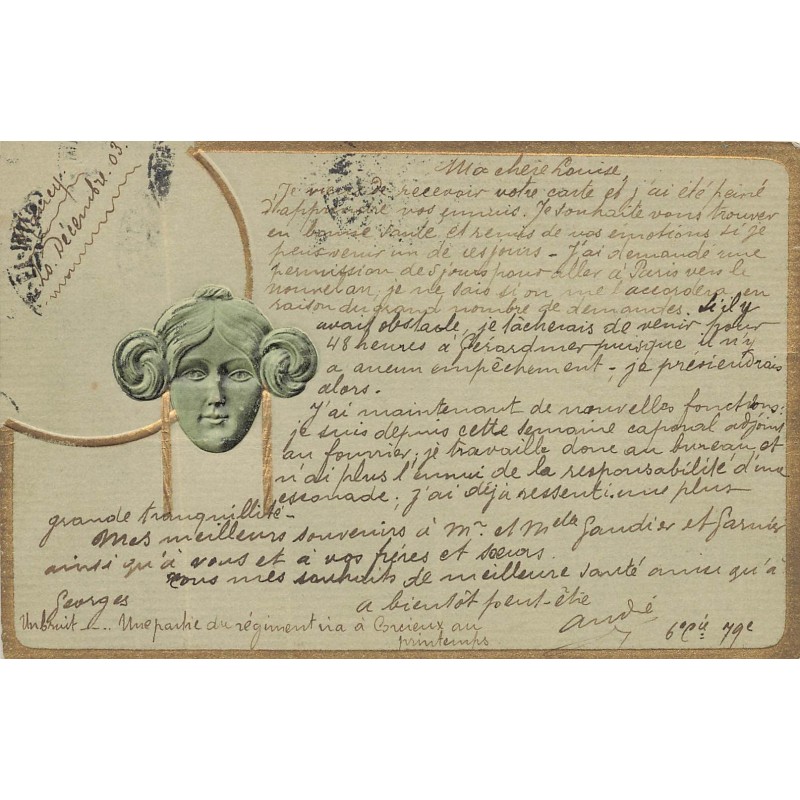 Nancy.
10 Décembre. 03.
Ma chère Louise,
Je viens de recevoir votre carte et j'ai été peiné
d'apprendre vos ennuis. Je souhaite vous trouver
en bonne santé et remis de vos émotions si je
peux venir un de ces jours - J'ai demandé une
permission de 5 jours pour aller à Paris vers le
nouvel an, je ne sais si on me l'accordera, en
raison du grand nombre de demandes. S'il y
avait obstacle, je tâcherais de venir pour
48 heures à Gérardmer puisque il n'y
a aucun empêchement - je préviendrais
alors.
J'ai maintenant de nouvelles fonctions:
je suis depuis cette semaine caporal adjoint
au fourrier; je travaille donc au bureau et
n'ai plus l'ennui de la responsabilité d'une
escouade; j'ai déjà ressenti une plus
grande tranquillité -
Mes meilleurs souvenirs à Mr. et Mela Gaudier et Garnier
ainsi qu'à vous et à vos frères et sœurs.
tous mes souhaits de meilleure santé ainsi qu'à
Georges
a bientôt peut-être
André
6e Cie 79e
Un bruit - .. Une partie du régiment ira à Corcieux au
printemps